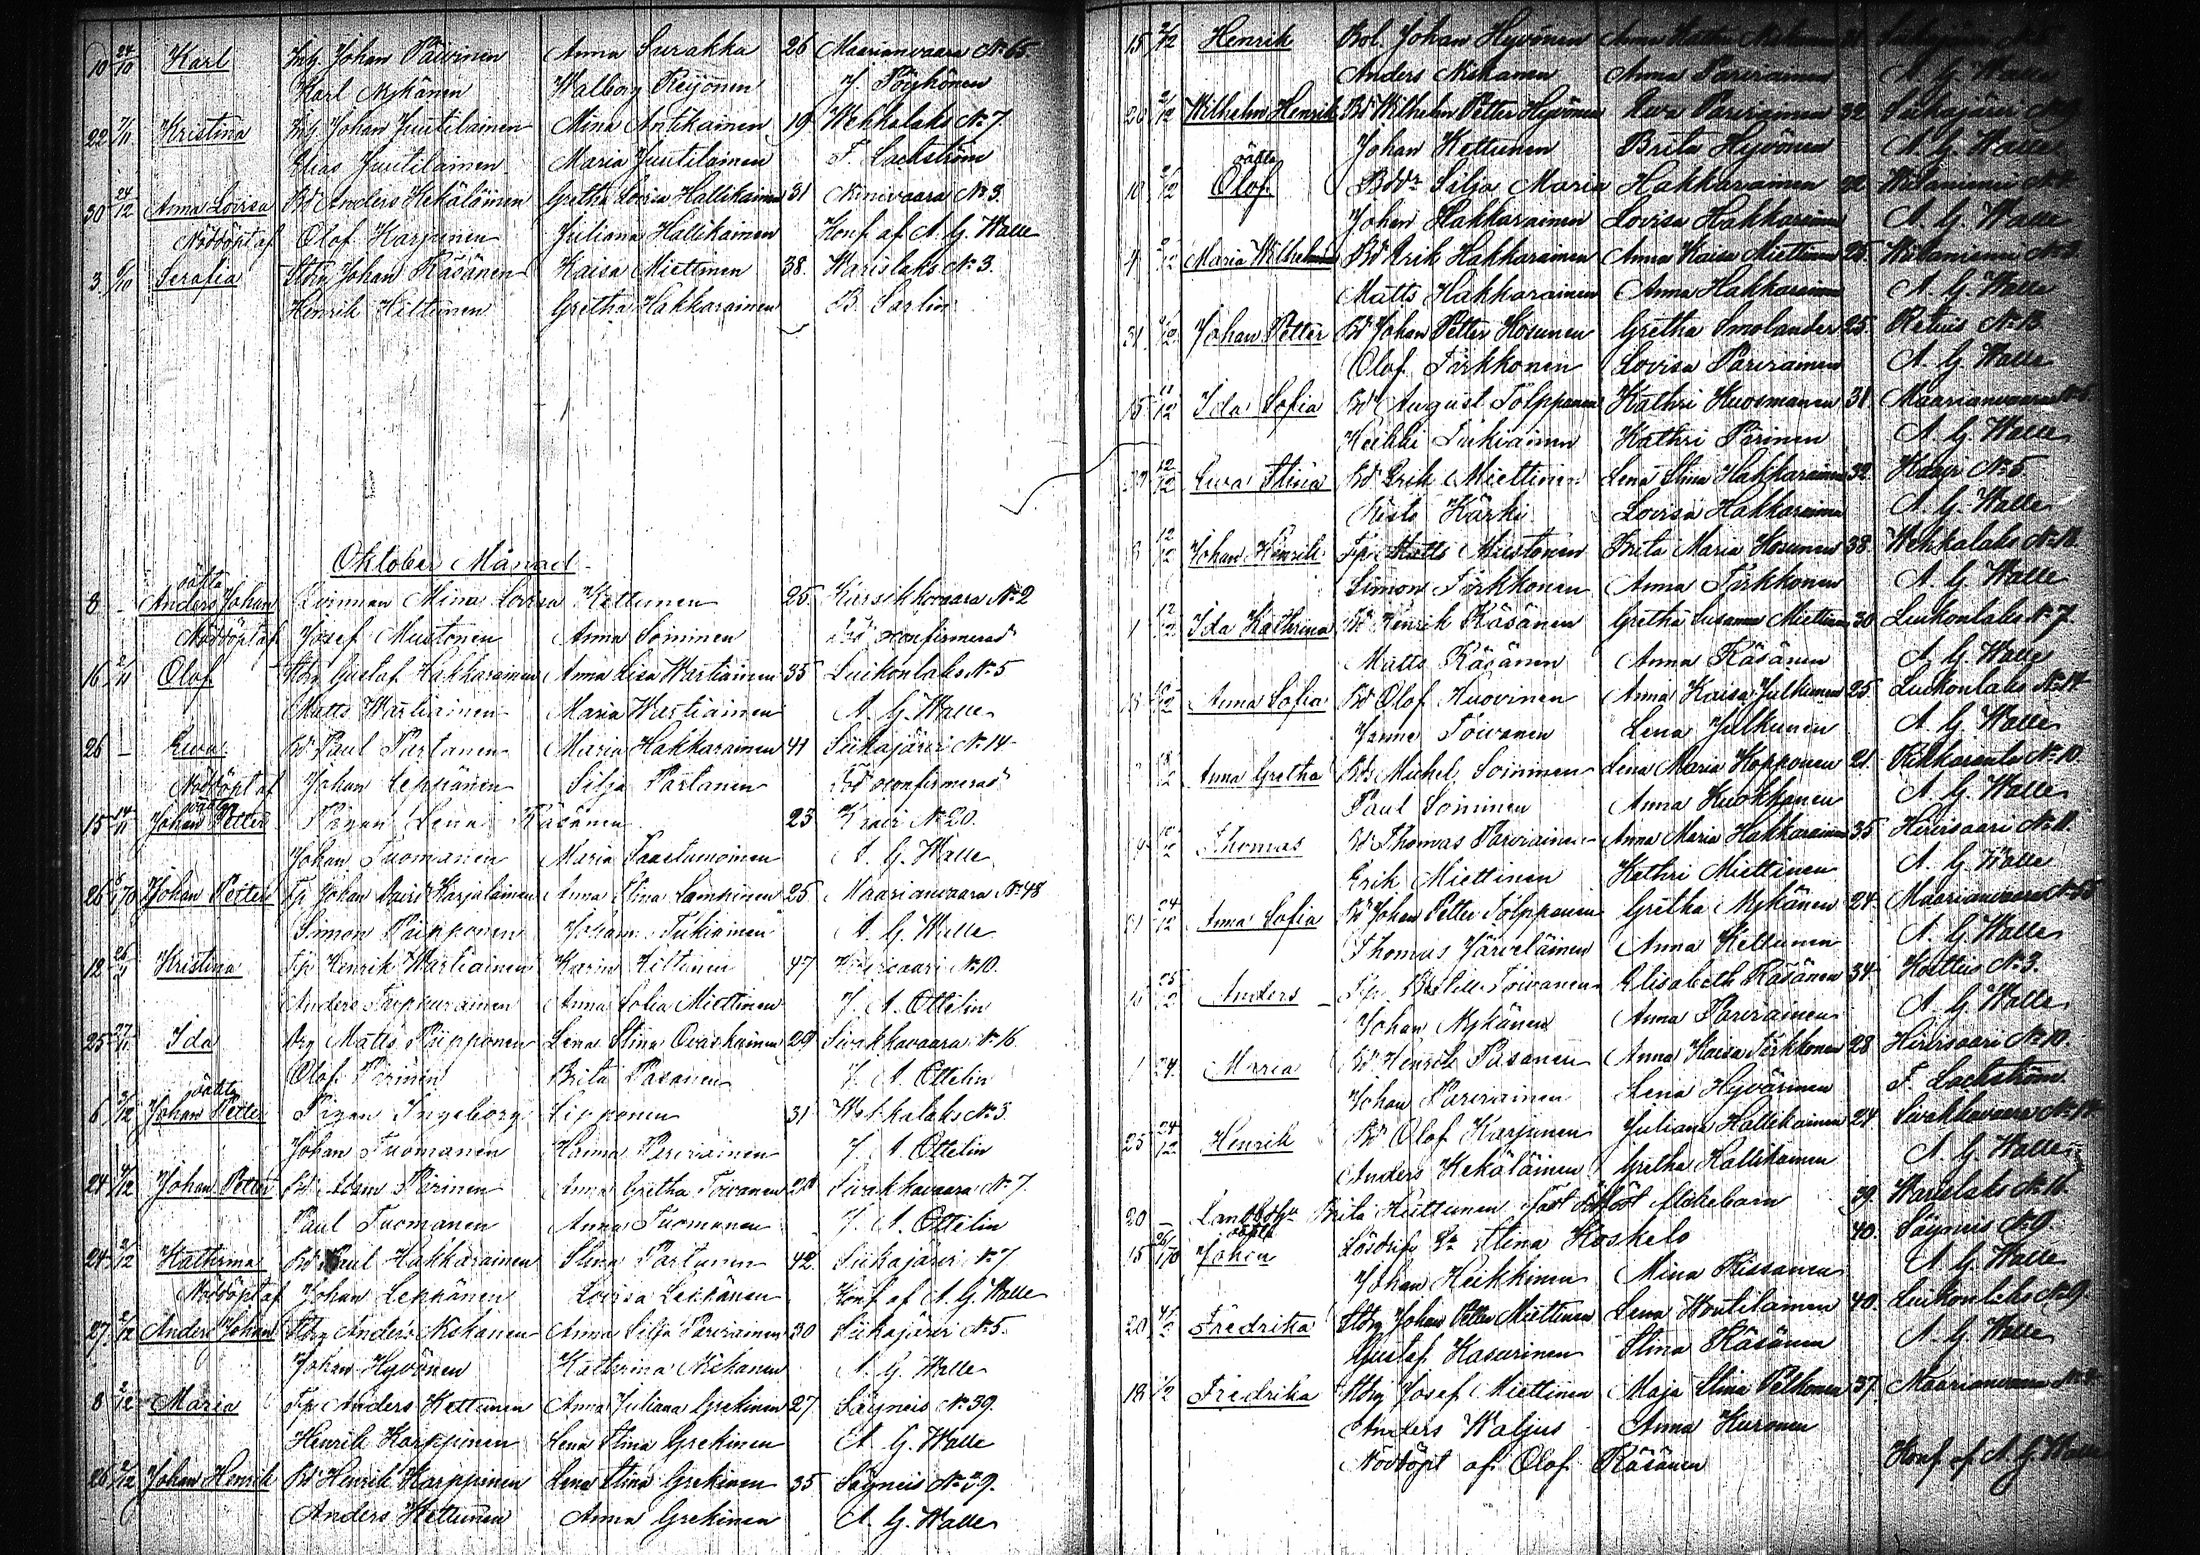 10 24/10 Karl Inh. Johan Päivinen Anna Surakka 26 Maarianvaara No 65.
Karl Nykänen Walborg Reijonen J. Pöyhönen
22 7/11 Kristina Inh. Johan Juutilainen Mina Antikainen 19 Wehkalaks No 7.
Elias Juutilainen Maria Juutilainen F. Lackström
30 24/12 Anna Lovisa Bd Anders Kekäläinen Gretha Lovisa Hallikainen 31 Ninivaara No 3.
Nöddöpt af Olof Karjunen Juliana Hallikainen Konf. af A. G. Walle
3 /10 Serafia Stdrg Johan Räsänen Kaisa Miettinen 38. Warislaks No 3.
Henrik Kettunen Gretha Hakkarainen B. Sarlin
Oktober Månad
8 – oäkta Anders Johan Qvinnan Mina Lovisa Kettunen 25 Kärsikkovaara No 2
Nöddöpt af Josef Mustonen Anna Soininen Död okonfirmerad
16 2/11 Olof Stdrg Gustaf Hakkarainen Anna Lisa Wartiainen 35 Luikonlaks No 5
Matts Wartiainen Maria Wartiainen A. G. Walle
26 – Ewa Bd Paul Partanen Maria Hakkarainen 41 Siikajärvi No 14
Nöddöpt af Johan Leppänen Silja Partanen Död okonfirmerad
15 14/11 oäkta Johan Petter Pigan Lena Räsänen 23 Kaavi No 20.
Johan Tuomanen Maria Saastamoinen A. G. Walle
25 /70 Johan Petter Tp Johan David Karjalainen Anna Stina Lampinen 25 Maarianvaara No 48
Simon Piipponen Johanna Tukiainen A. G. Walle
12 26/11 Kristina Tp Henrik Wartiainen Karin Kettunen 47 Hirvisaari No 10.
Anders Parpurainen Anna Sofia Miettinen J. A. Ottelin
25 27/11 Ida Drg Matts Piipponen Lena Stina Ovaskainen 29 Sivakkavaara No 16
Olof Pärinen Brita Pasanen J. A. Ottelin
6 3/12 oäkta Johan Petter Pigan Ingeborg Lipponen 31 Wehkalaks No 3.
Johan Tuomanen Hanna Parviainen J. A. Ottelin
24 4/12 Johan Petter Bd Adam Pärinen Anna Gretha Toivanen Sivakkavaara No 7.
Paul Tuomanen Anna Tuomanen J. A. Ottelin
24 2/12 Katharina Bd Paul Hakkarainen Stina Partanen 42. Siikajärvi No 7
Nöddöpt af Johan Leppänen Lovisa Leppänen Konf. af A. G. Walle
27 2/12 Anders Johan Stdrg Anders Niskanen Anna Silja Parviainen 30 Siikajärvi No 5.
Johan Hyvönen Katharina Niskanen A. G. Walle
8 2/12 Maria Tp Anders Kettunen Anna Juliana Grekinen 27. Säyneis No 39.
Henrik Karppinen Lena Stina Grekinen A. G. Walle
26 2/12 Johan Henrik Bd Henrik Karppinen Lena Stina Grekinen 35 Säyneis No 39.
Anders Kettunen Anna Grekinen A. G. Walle
15 2/12 Henrik Bol. Johan Hyvönen Anna
Anders Niskanen Anna Parviainen A. G. Walle
20 2/12 Wilhelm Henrik Bd Wilhelm Petter Hyvönen Ewa Parviainen 32 Siikajärvi
Johan Kettunen Brita Hyvönen A. G. Walle
10 2/12 oäkta Olof Bddr Silja Maria Hakkarainen 22
Johan Hakkarainen Lovisa Hakkarainen A. G. Walle
4 2/12 Maria Wilhelmina Bd Erik Hakkarainen Anna Kaisa Miettinen 25.
Matts Hakkarainen Anna Hakkarainen A. G. Walle
31 /12 Johan Petter Bd Johan Petter Kosunen Gretha Smolander 25. Retuis No 13
Olof Tirkkonen Lovisa Parviainen A. G. Walle
15 11/12 Ida Sofia Bd August Tolppanen Kathri Huosmanen 31 Maarianvaara
Heikki Tukiainen Kathri Pärinen A. G. Walle
12/12 Ewa Stina Bd Erik Miettinen Lena Stina Hakkarainen 32 Kaavi No 5
Risto Kärki Lovisa Hakkarainen A. G. Walle
12/12 Johan Henrik Tp Matts Mustonen Brita Maria Kosunen 38 Wehkalaks No 18
Simon Tirkkonen Anna Tirkkonen A. G. Walle
1 12/12 Ida Kathrina Bd Henrik Räsänen Gretha Susanna Miettinen 30 Luikonlaks No 7.
Matts Räsänen Anna Räsänen A. G. Walle
Anna Sofia Bd Olof Huovinen Anna Kaisa Julkunen 25 Luikonlaks No 14
Janne Toivanen Lena Julkunen A. G. Walle
18/12 Anna Gretha Bd Michel Soininen Lena Maria Kopponen 21 No 10.
Paul Soininen Anna Kuokkanen A. G. Walle
Thomas Bd Thomas Parviainen Anna Maria Hakkarainen 35 Hirvisaari No 11.
Erik Miettinen Kathri Miettinen A. G. Walle
21 24/12 Anna Sofia Bd Johan Petter Tolppanen Gretha Nykänen 24. Maarianvaara No 55
Thomas Järveläinen Anna Kettunen A. G. Walle
25/12 Anders Tp Toivanen Elisabeth Räsänen 34 Kortteis No 3.
Johan Nykänen Anna Parviainen A. G. Walle
1 24. Maria Bd Henrik Pasanen Anna Kaisa Tirkkonen 28 Hirvisaari No 10
Johan Parviainen Lena Hyvärinen F. Lackström
25 24/12 Henrik Bd Olof Karjunen Juliana Hallikainen 24 Sivakkavaara No 14
Anders Kekäläinen Gretha Hallikainen A. G. Walle
20 – Brita Huttunen födt dödfödt flickebarn 39. Warislaks No 11.
15 /70 oäkta Johan Lösdrif. Stina Koskelo 40. Säyneis No 9
Johan Heikkinen Mina Kissanen A. G. Walle
20 Fredrika Stdrg Johan Petter Miettinen Lena Woutilainen 40 Luikonlaks No 9.
Gustaf Kasurinen Stina Räsänen A. G. Walle
18 1/2 Fredrika Stdrg Josef Miettinen Maja Stina Pelkonen 37. Maarianvaara
Anders Waljus Anna Kuronen
Nöddöpt af Olof Räsänen Konf. af A. G. Walle